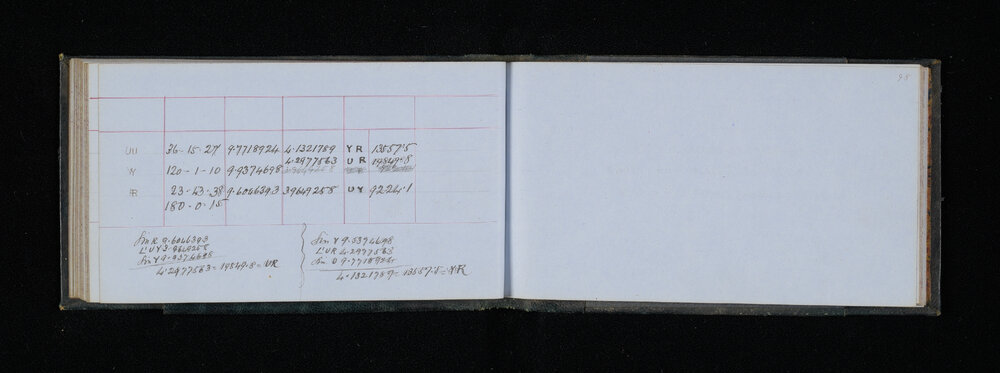 98
UU 36-15-27 9.7718924 4.1321789 YR 13557.5
4.2977563 UR 19849.8
Y 120-1-10 9.9374698
R 23-43-38 9.6046393 3.9649255 UY 9224.1
180-0-15
Sin R 9.6046393
L' UY 3.9649255
Sin Y 9.9374698
4.2977563 = 19849.8 = UR
Sin Y 9.9374698
L' UR 4.2977563
Sin U 9.7718924
4.1321789 = 13557.5 = YR